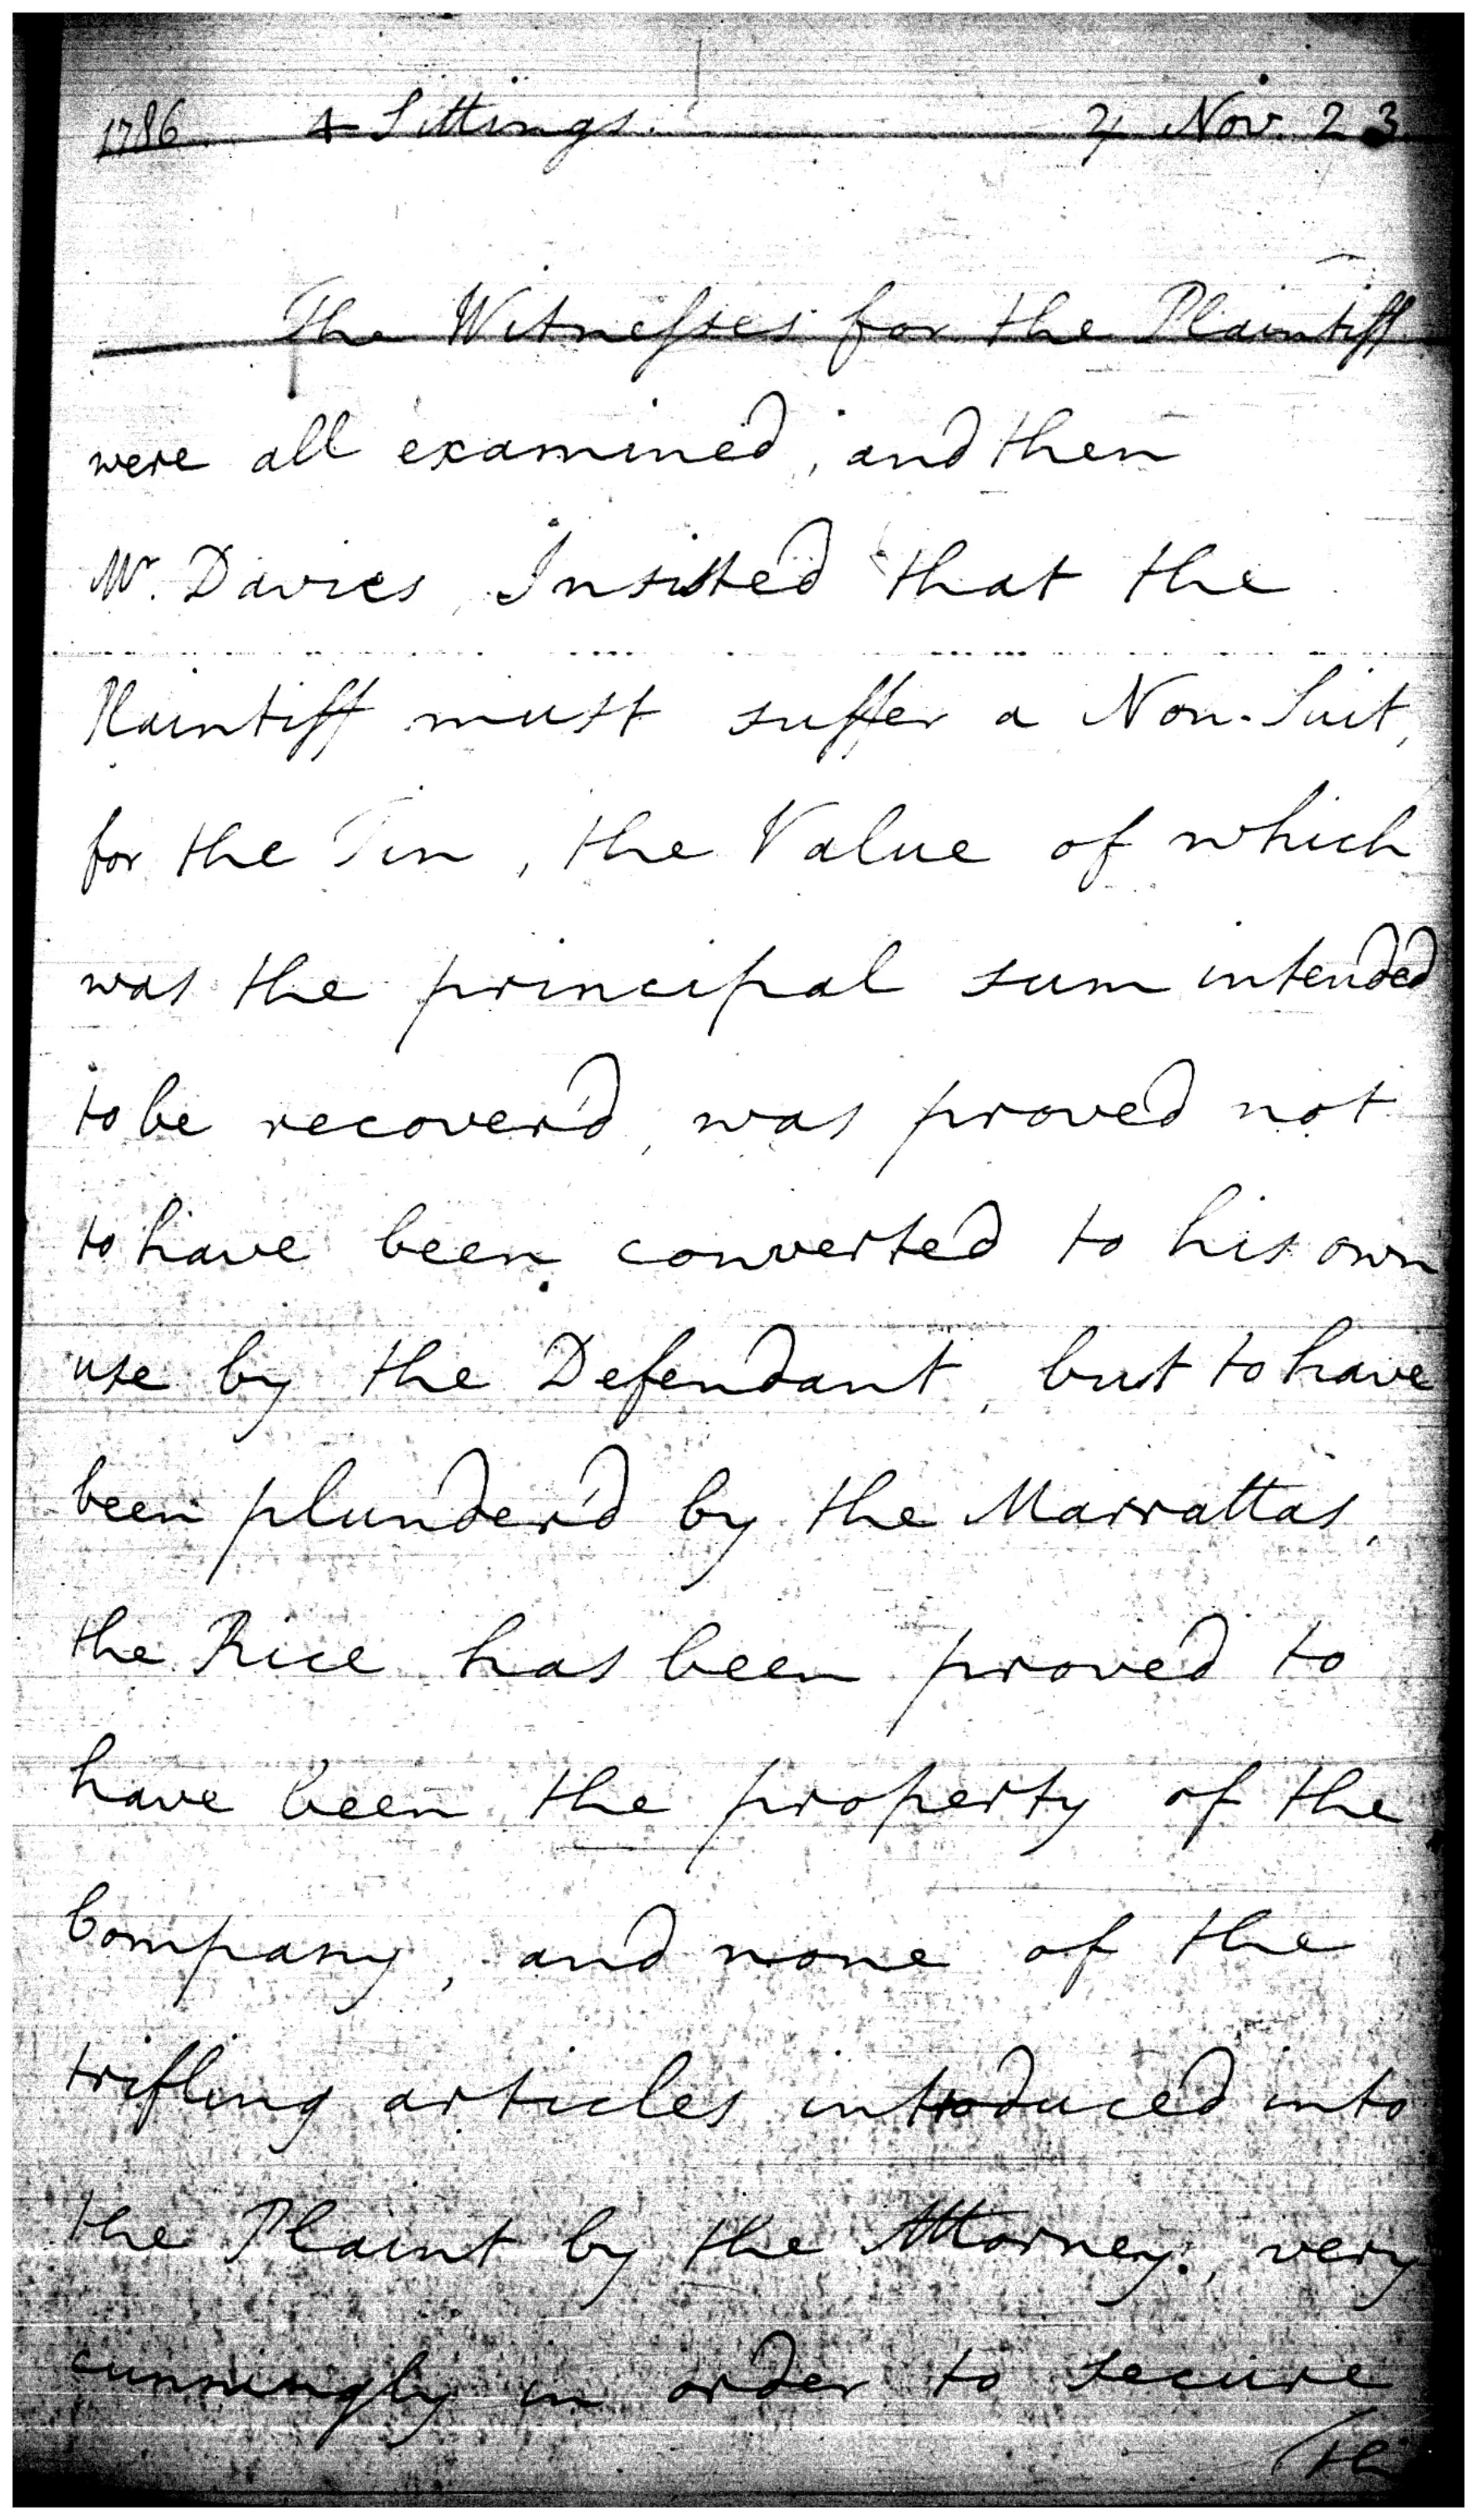 1786. 4 Sittings. 4 Nov. 23
The Witnesses for the Plaintiff
were all examined, and then
Mr. Davies, Insisted that the
Plaintiff must suffer a Non-Suit,
for the Tin, the Value of which
was the principal sum intended
to be recover'd, was proved not
to have been converted to his own
use by the Defendant, but to have
been plunder'd by the Marrattas,
the Rice has been proved to
have been the property of the
Company, and none of the
trifling articles introduced into
the Plaint by the Attorney, very
cunningly in order to secure